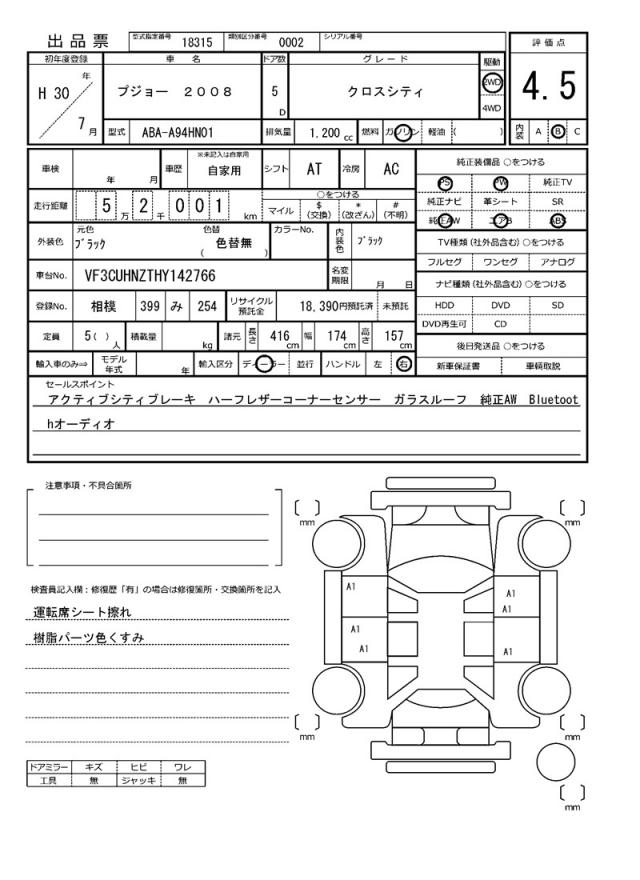 出品票 型式指定番号 18315 類別区分番号 0002 シリアル番号
評価点
4.5
初年度登録 車名 ドア数 グレード 駆動
H 30 年 7 月 プジョー 2008 5 D クロスシティ 2WD 4WD
型式 ABA-A94HN01 排気量 1.200 cc 燃料 ガソリン 軽油 ( ) 内装 A B C
車検 年 月 車歴 ※未記入は自家用 自家用 シフト AT 冷房 AC
走行距離 5 万 2 千 001 km ○をつける
マイル $(交換) *(改ざん) #(不明)
外装色 元色 ブラック 色替 色替無 ( ) カラーNo. 内装色 ブラック
車台No. VF3CUHNZTHY142766 名変期限 月 日
登録No. 相模 399 み 254 リサイクル預託金 18,390円預託済 未預託
定員 5( ) 人 積載量 kg 諸元 長さ 416 cm 幅 174 cm 高さ 157 cm
輸入車のみ⇒ モデル年式 年 輸入区分 ディーラー 並行 ハンドル 左 右
純正装備品 ○をつける
PS PW 純正TV
純正ナビ 革シート SR
純正AW エアB ABS
TV種類 (社外品含む) ○をつける
フルセグ ワンセグ アナログ
ナビ種類 (社外品含む) ○をつける
HDD DVD SD
DVD再生可 CD
後日発送品 ○をつける
新車保証書 車輌取説
セールスポイント
アクティブシティブレーキ ハーフレザーコーナーセンサー ガラスルーフ 純正AW Bluetoot
hオーディオ
注意事項・不具合箇所
検査員記入欄：修復歴「有」の場合は修復箇所・交換箇所を記入
運転席シート擦れ
樹脂パーツ色くすみ
ドアミラー キズ ヒビ ワレ
工具 無 ジャッキ 無
mm
mm
A1
A1
A1
A1
A1
A1
mm
mm
mm